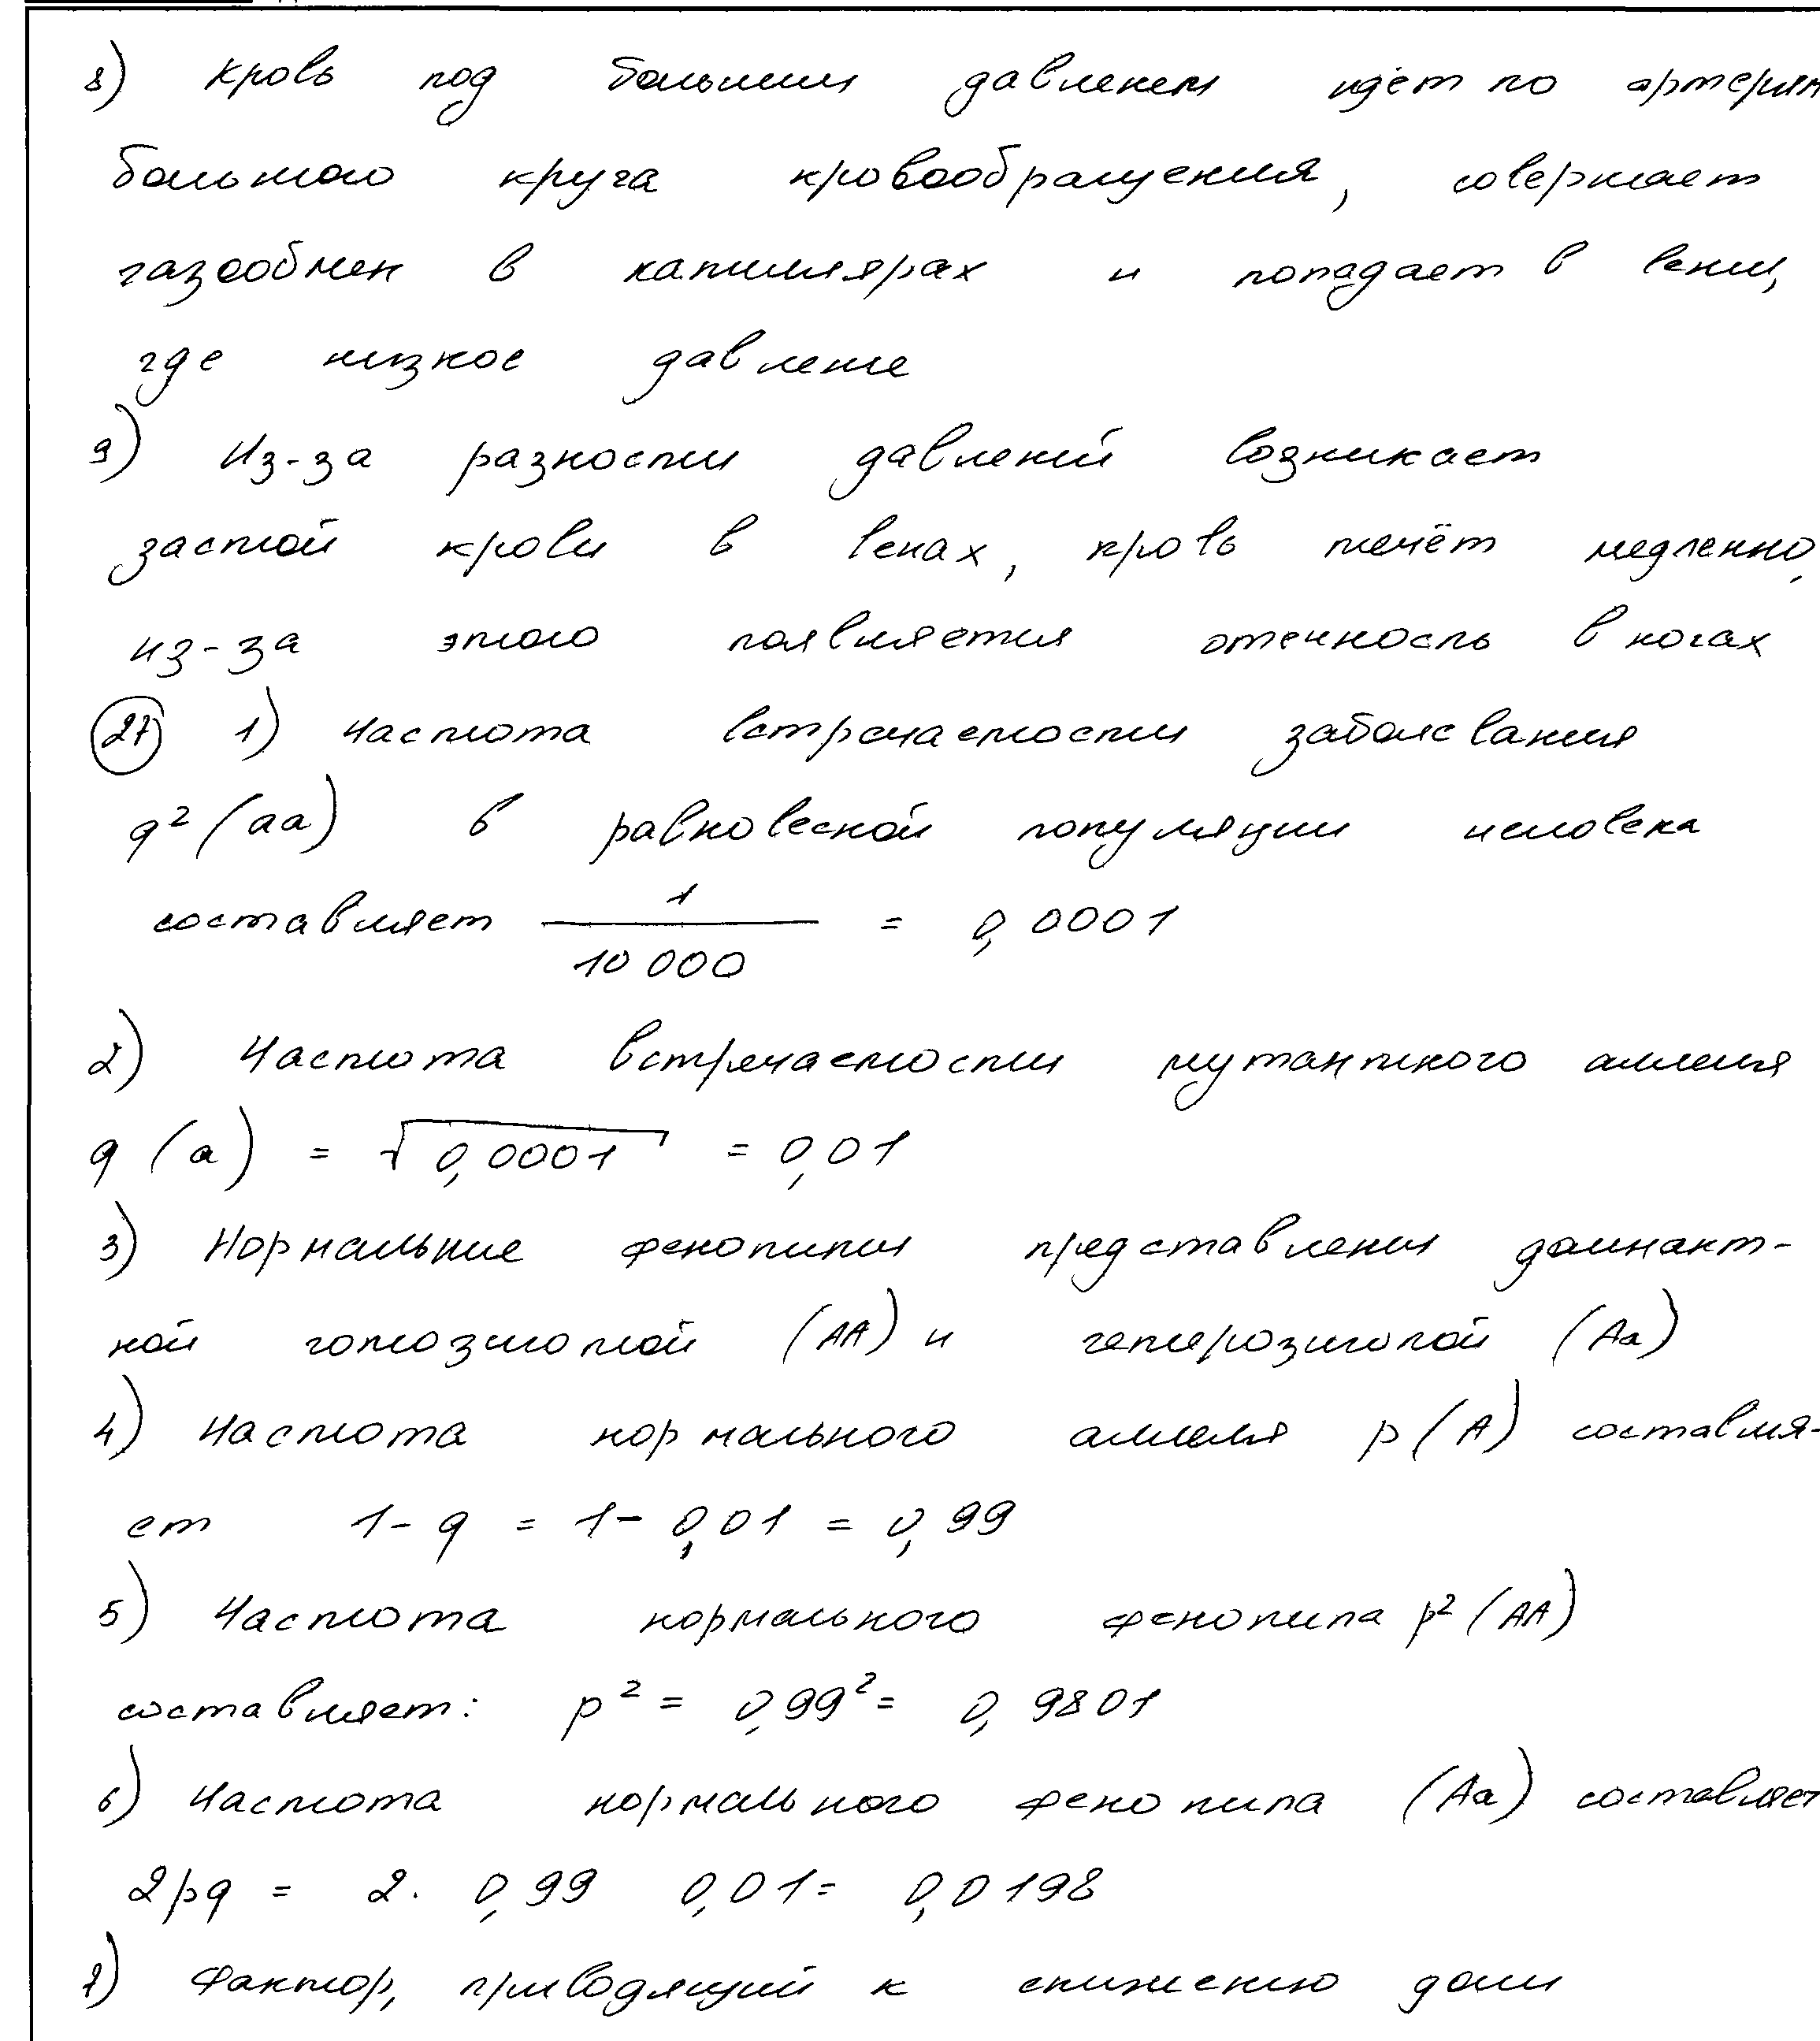 8) Кровь под большим давленем идёт по артериям
большого круга кровообращения, совершает
газообмен в капиллярах и попадает в вены,
где низкое давление
9) Из-за разности давлений возникает
застой крови в венах, кровь течёт медленно,
из-за этого появляется отечность в ногах
27) 1) Частота встречаемости заболевания
q² (aa) в равновесной популяции человека
составляет 1/10 000 = 0,0001
2) Частота встречаемости мутантного аллеля
q (a) = √0,0001 = 0,01
3) Нормальные фенотипы представлены доминант-
ной гомозиготой (AA) и гетерозиготой (Aa)
4) Частота нормального аллеля p (A) составля-
ет 1 - q = 1 - 0,01 = 0,99
5) Частота нормального фенотипа p² (AA)
составляет: p² = 0,99² = 0,9801
6) Частота нормального фенотипа (Aa) составляет
2pq = 2 · 0,99 0,01 = 0,0198
7) Фактор, приводящий к снижению доли